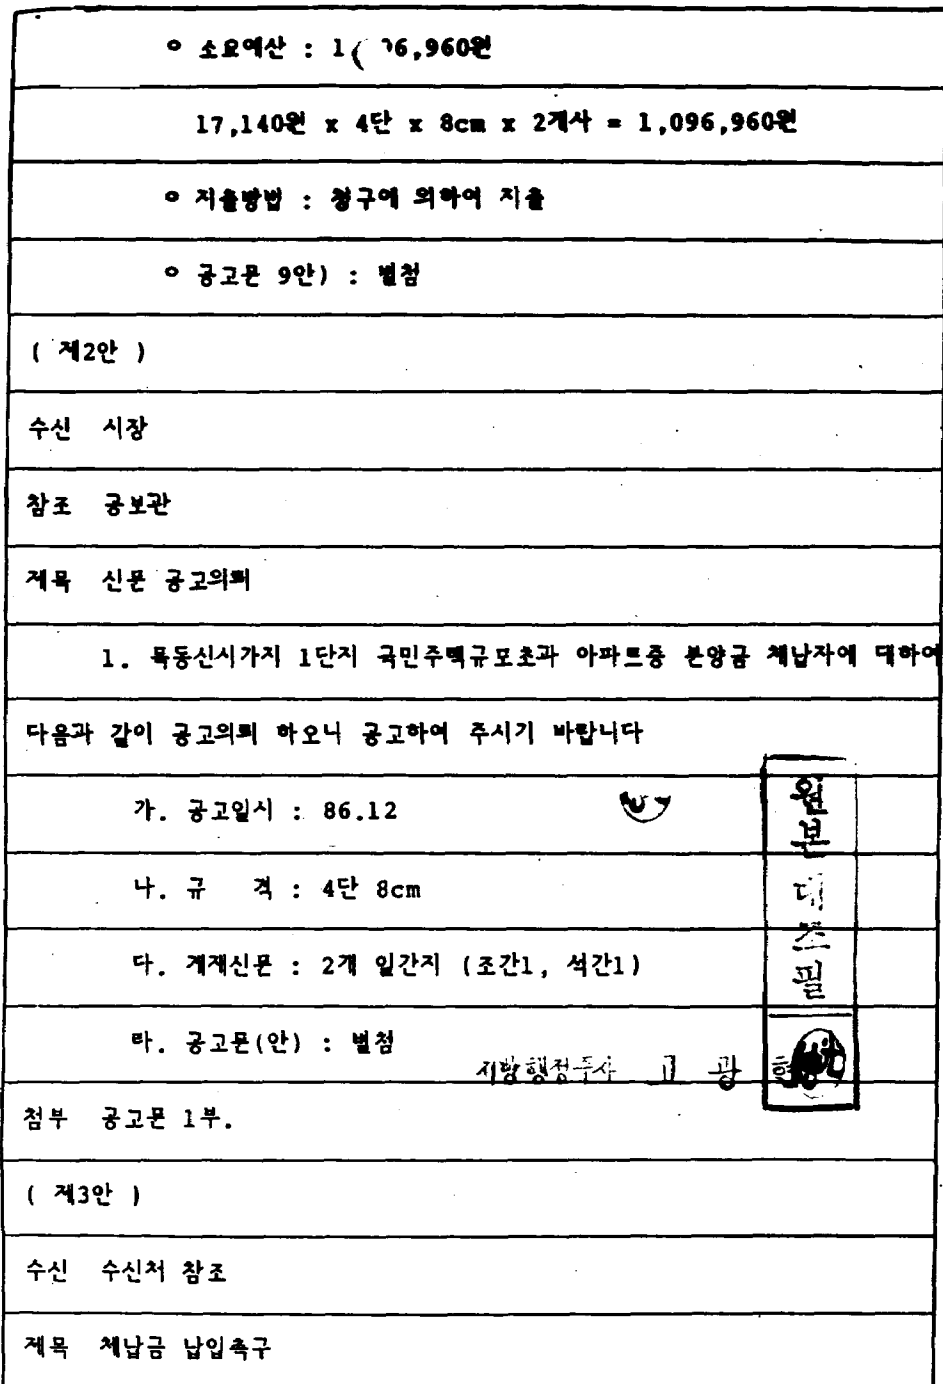 o 소요예산 : 1( 96,960원
17,140원 x 4단 x 8cm x 2개사 = 1,096,960원
o 지출방법 : 청구에 의하여 지출
o 공고문 9안) : 별첨
( 제2안 )
수신 시장
참조 공보관
제목 신문 공고의뢰
1. 목동신시가지 1단지 국민주택규모초과 아파트중 분양금 체납자에 대하여
다음과 같이 공고의뢰 하오니 공고하여 주시기 바랍니다
가. 공고일시 : 86.12
나. 규 격 : 4단 8cm
다. 게재신문 : 2개 일간지 (조간1, 석간1)
라. 공고문(안) : 별첨
원본대조필
지방행정주사 고 광 현
첨부 공고문 1부.
( 제3안 )
수신 수신처 참조
제목 체납금 납입촉구